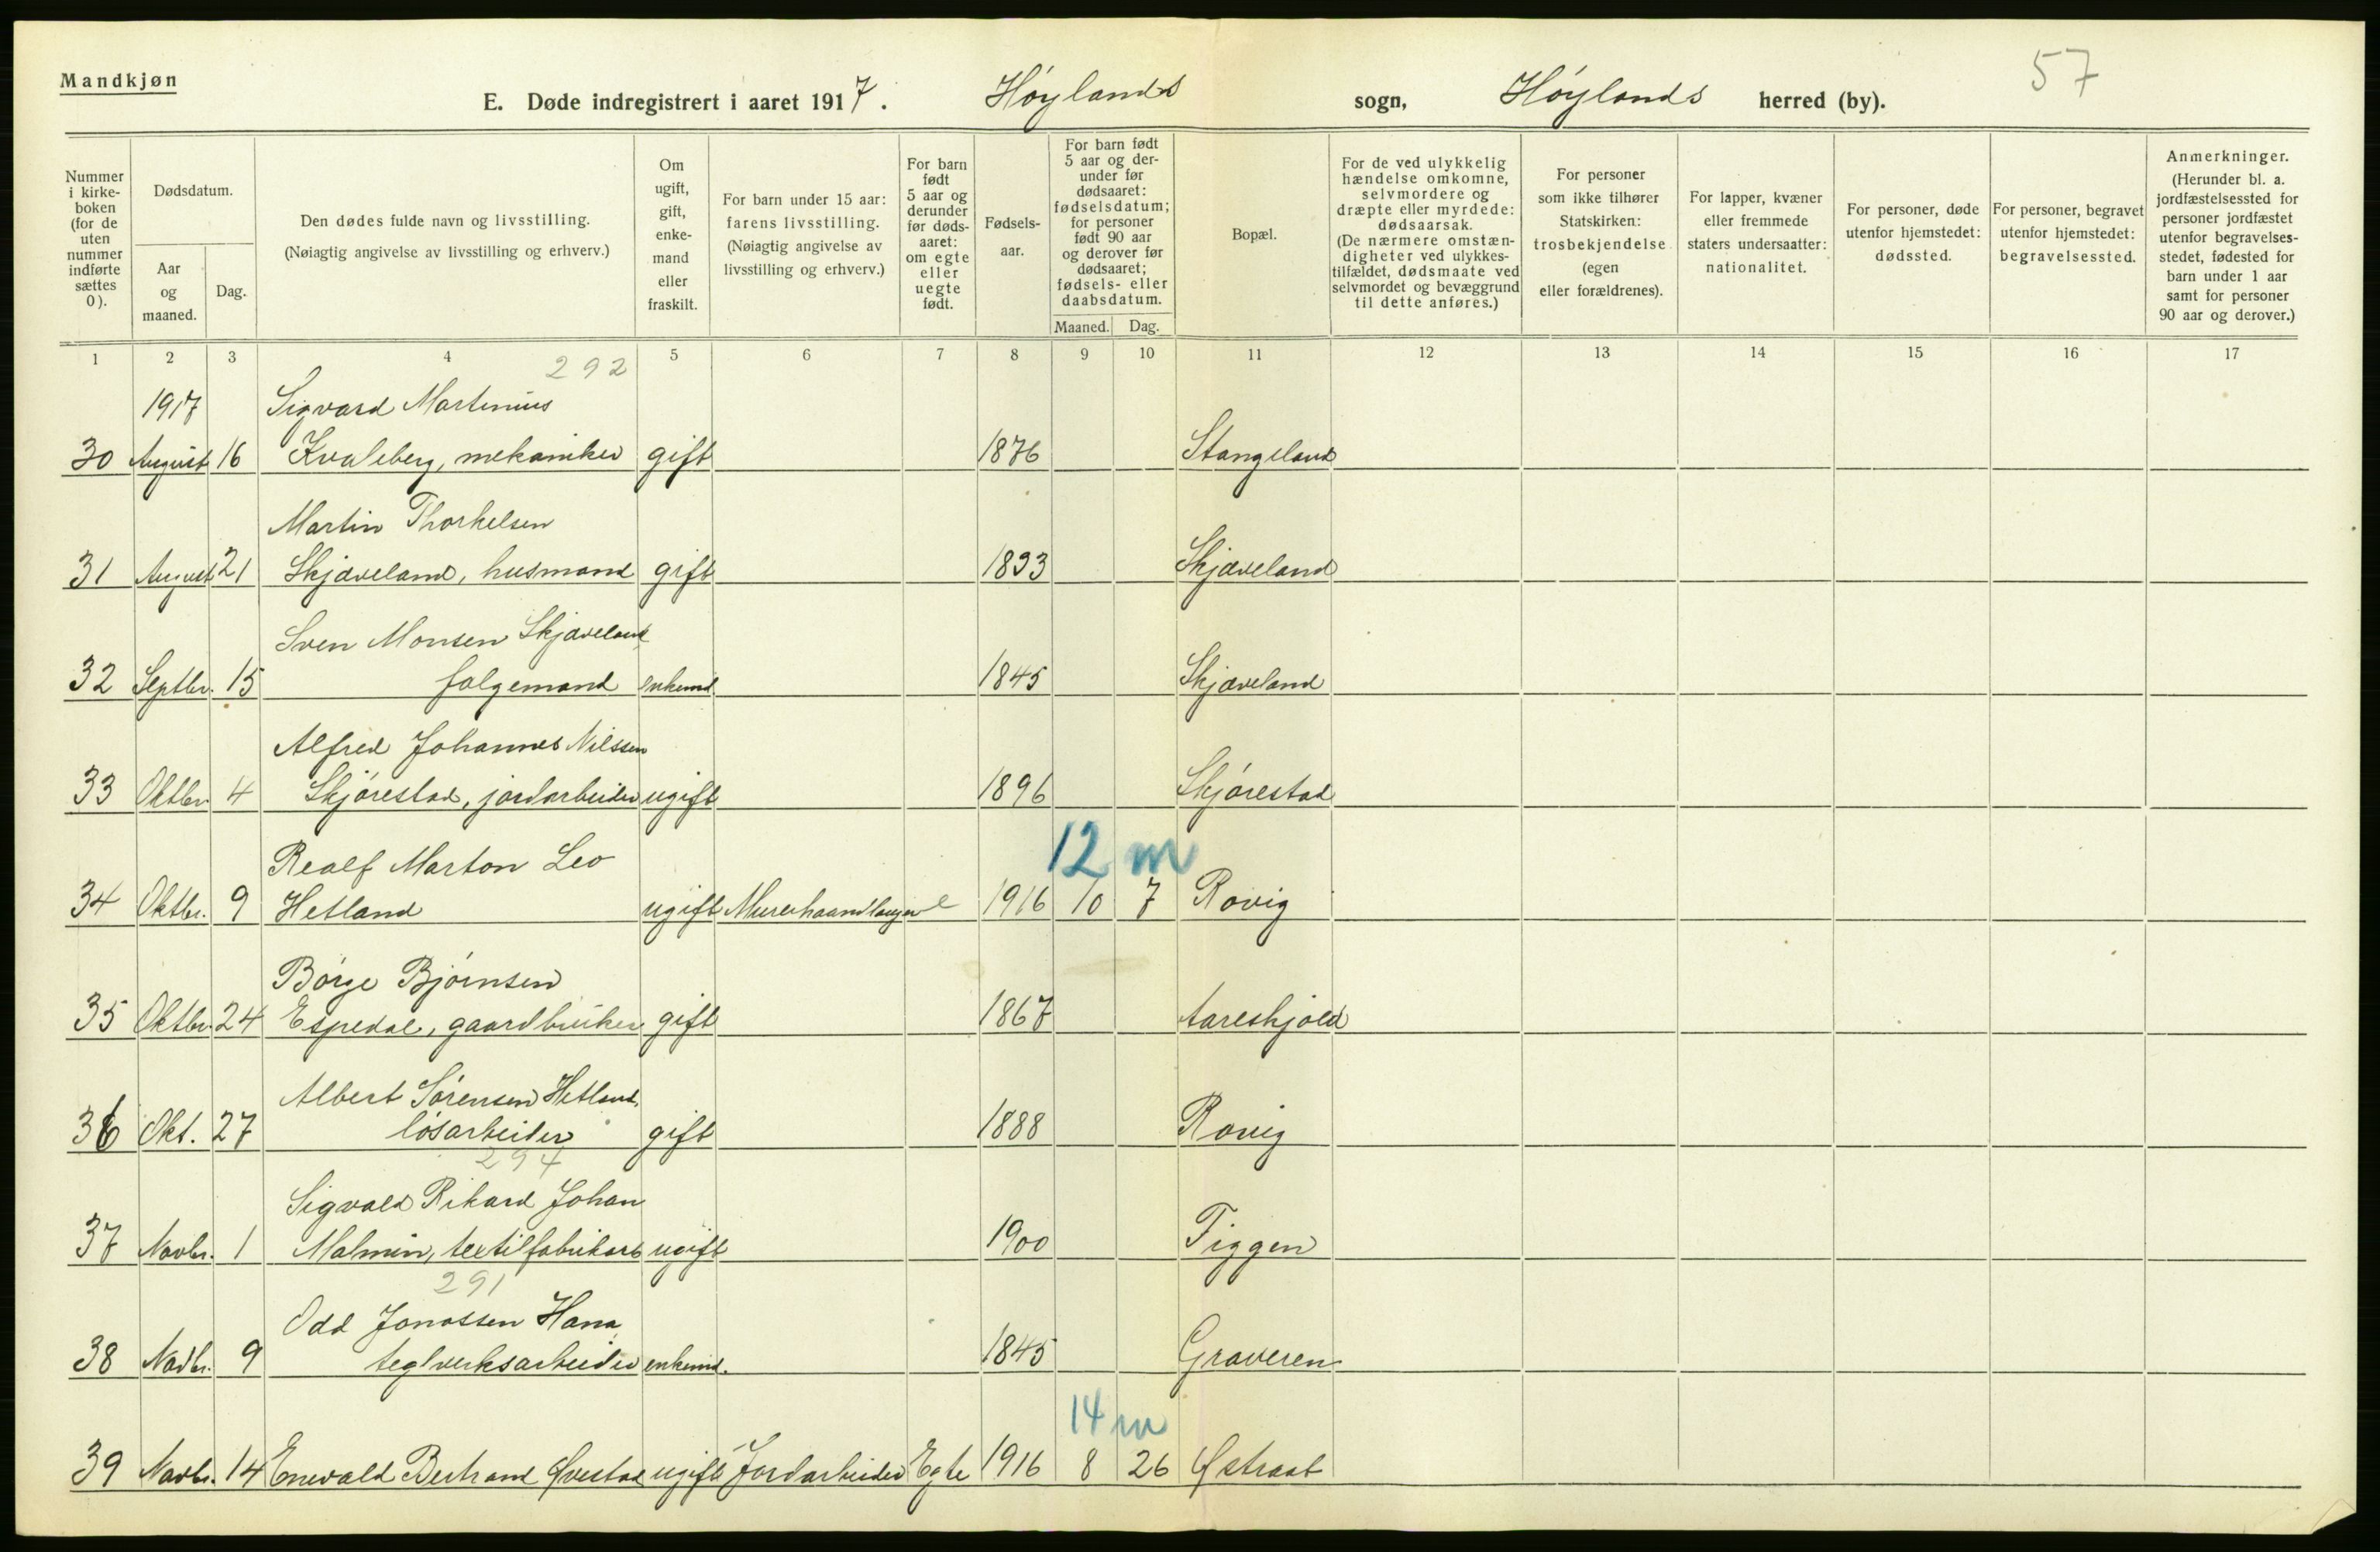 Mandkjøn
57
E. Døde indregistrert i aaret 1917. Høylands sogn, Høylands herred (by).
Nummer i kirke- boken (for de uten nummer indførte sættes 0).
Dødsdatum.
Aar og maaned.
Dag.
Den dødes fulde navn og livsstilling.
(Nøiagtig angivelse av livsstilling og erhverv.)
Om ugift, gift, enke- mand eller fraskilt.
For barn under 15 aar: farens livsstilling. (Nøiagtig angivelse av livsstilling og erhverv.)
For barn født 5 aar og derunder før døds- aaret: om egte eller uegte født.
Fødsels- aar.
For barn født 5 aar og der- under før dødsaaret: fødselsdatum; for personer født 90 aar og derover før dødsaaret; fødsels- eller daabsdatum.
Maaned. Dag.
Bopæl.
For de ved ulykkelig hændelse omkomne, selvmordere og dræpte eller myrdede: dødsaarsak. (De nærmere omstæn- digheter ved ulykkes- tilfældet, dødsmaate ved selvmordet og bevæggrund til dette anføres.)
For personer som ikke tilhører Statskirken: trosbekjendelse (egen eller forældrenes).
For lapper, kvæner eller fremmede staters undersaatter: nationalitet.
For personer, døde utenfor hjemstedet: dødssted.
For personer, begravet utenfor hjemstedet: begravelsessted.
Anmerkninger. (Herunder bl. a. jordfæstelsessted for personer jordfæstet utenfor begravelses- stedet, fødested for barn under 1 aar samt for personer 90 aar og derover.)
1 2 3 4 5 6 7 8 9 10 11 12 13 14 15 16 17
292
1917 Sigvard Martinius
30 August 16 Kvaleberg, mekaniker gift 1876 Stangeland
Martin Thorkelsen
31 August 21 Skjæveland, husmand gift 1833 Skjæveland
Sven Monsen Skjæveland
32 Septbr. 15 følgemand enkemd 1845 Skjæveland
Alfred Johannes Nilssen
33 Oktbr. 4 Skjørestad, jordarbeider ugift 1896 Skjørestad
12 m
Realf Marton Leo
34 Oktbr. 9 Hetland ugift Murerhaandlanger e 1916 10 7 Rovig
Børge Bjørnsen
35 Oktbr. 24 Espedal, gaardbruker gift 1867 Aareskjold
Albert Sørensen Hetland,
36 Okt. 27 løsarbeider gift 1888 Rovig
294
Sigvald Rikard Johan
37 Novbr. 1 Malmin, textilfabrikarb ugift 1900 Figgen
291
Odd Jonassen Hana
38 Novbr. 9 teglverksarbeider enkemd. 1845 Graveren
14 m
39 Novbr. 14 Enevald Bertrand Øvestad ugift Jordarbeider Egte 1916 8 26 Østraat